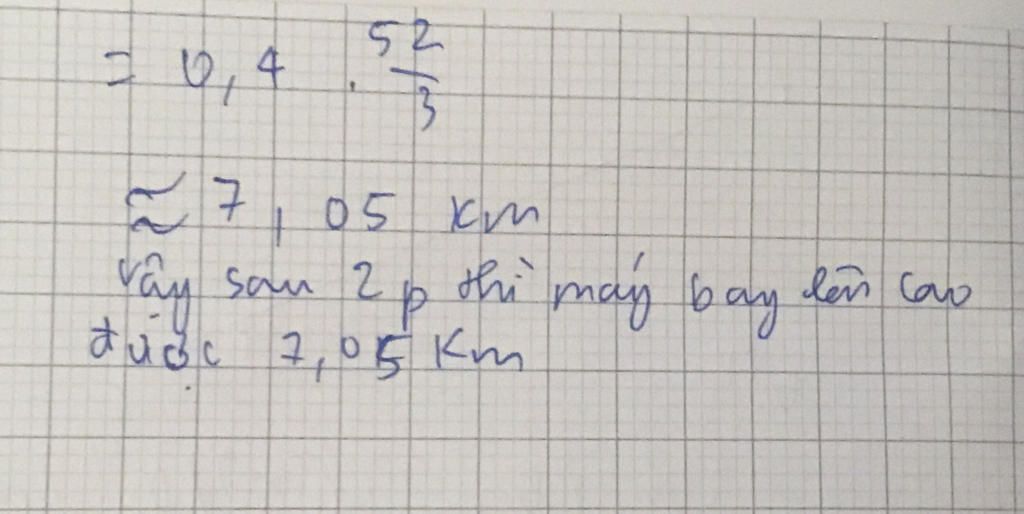 = 0,4 . 52/3
≈ 7,05 km
Vậy sau 2p thì máy bay lên cao
được 7,05 Km